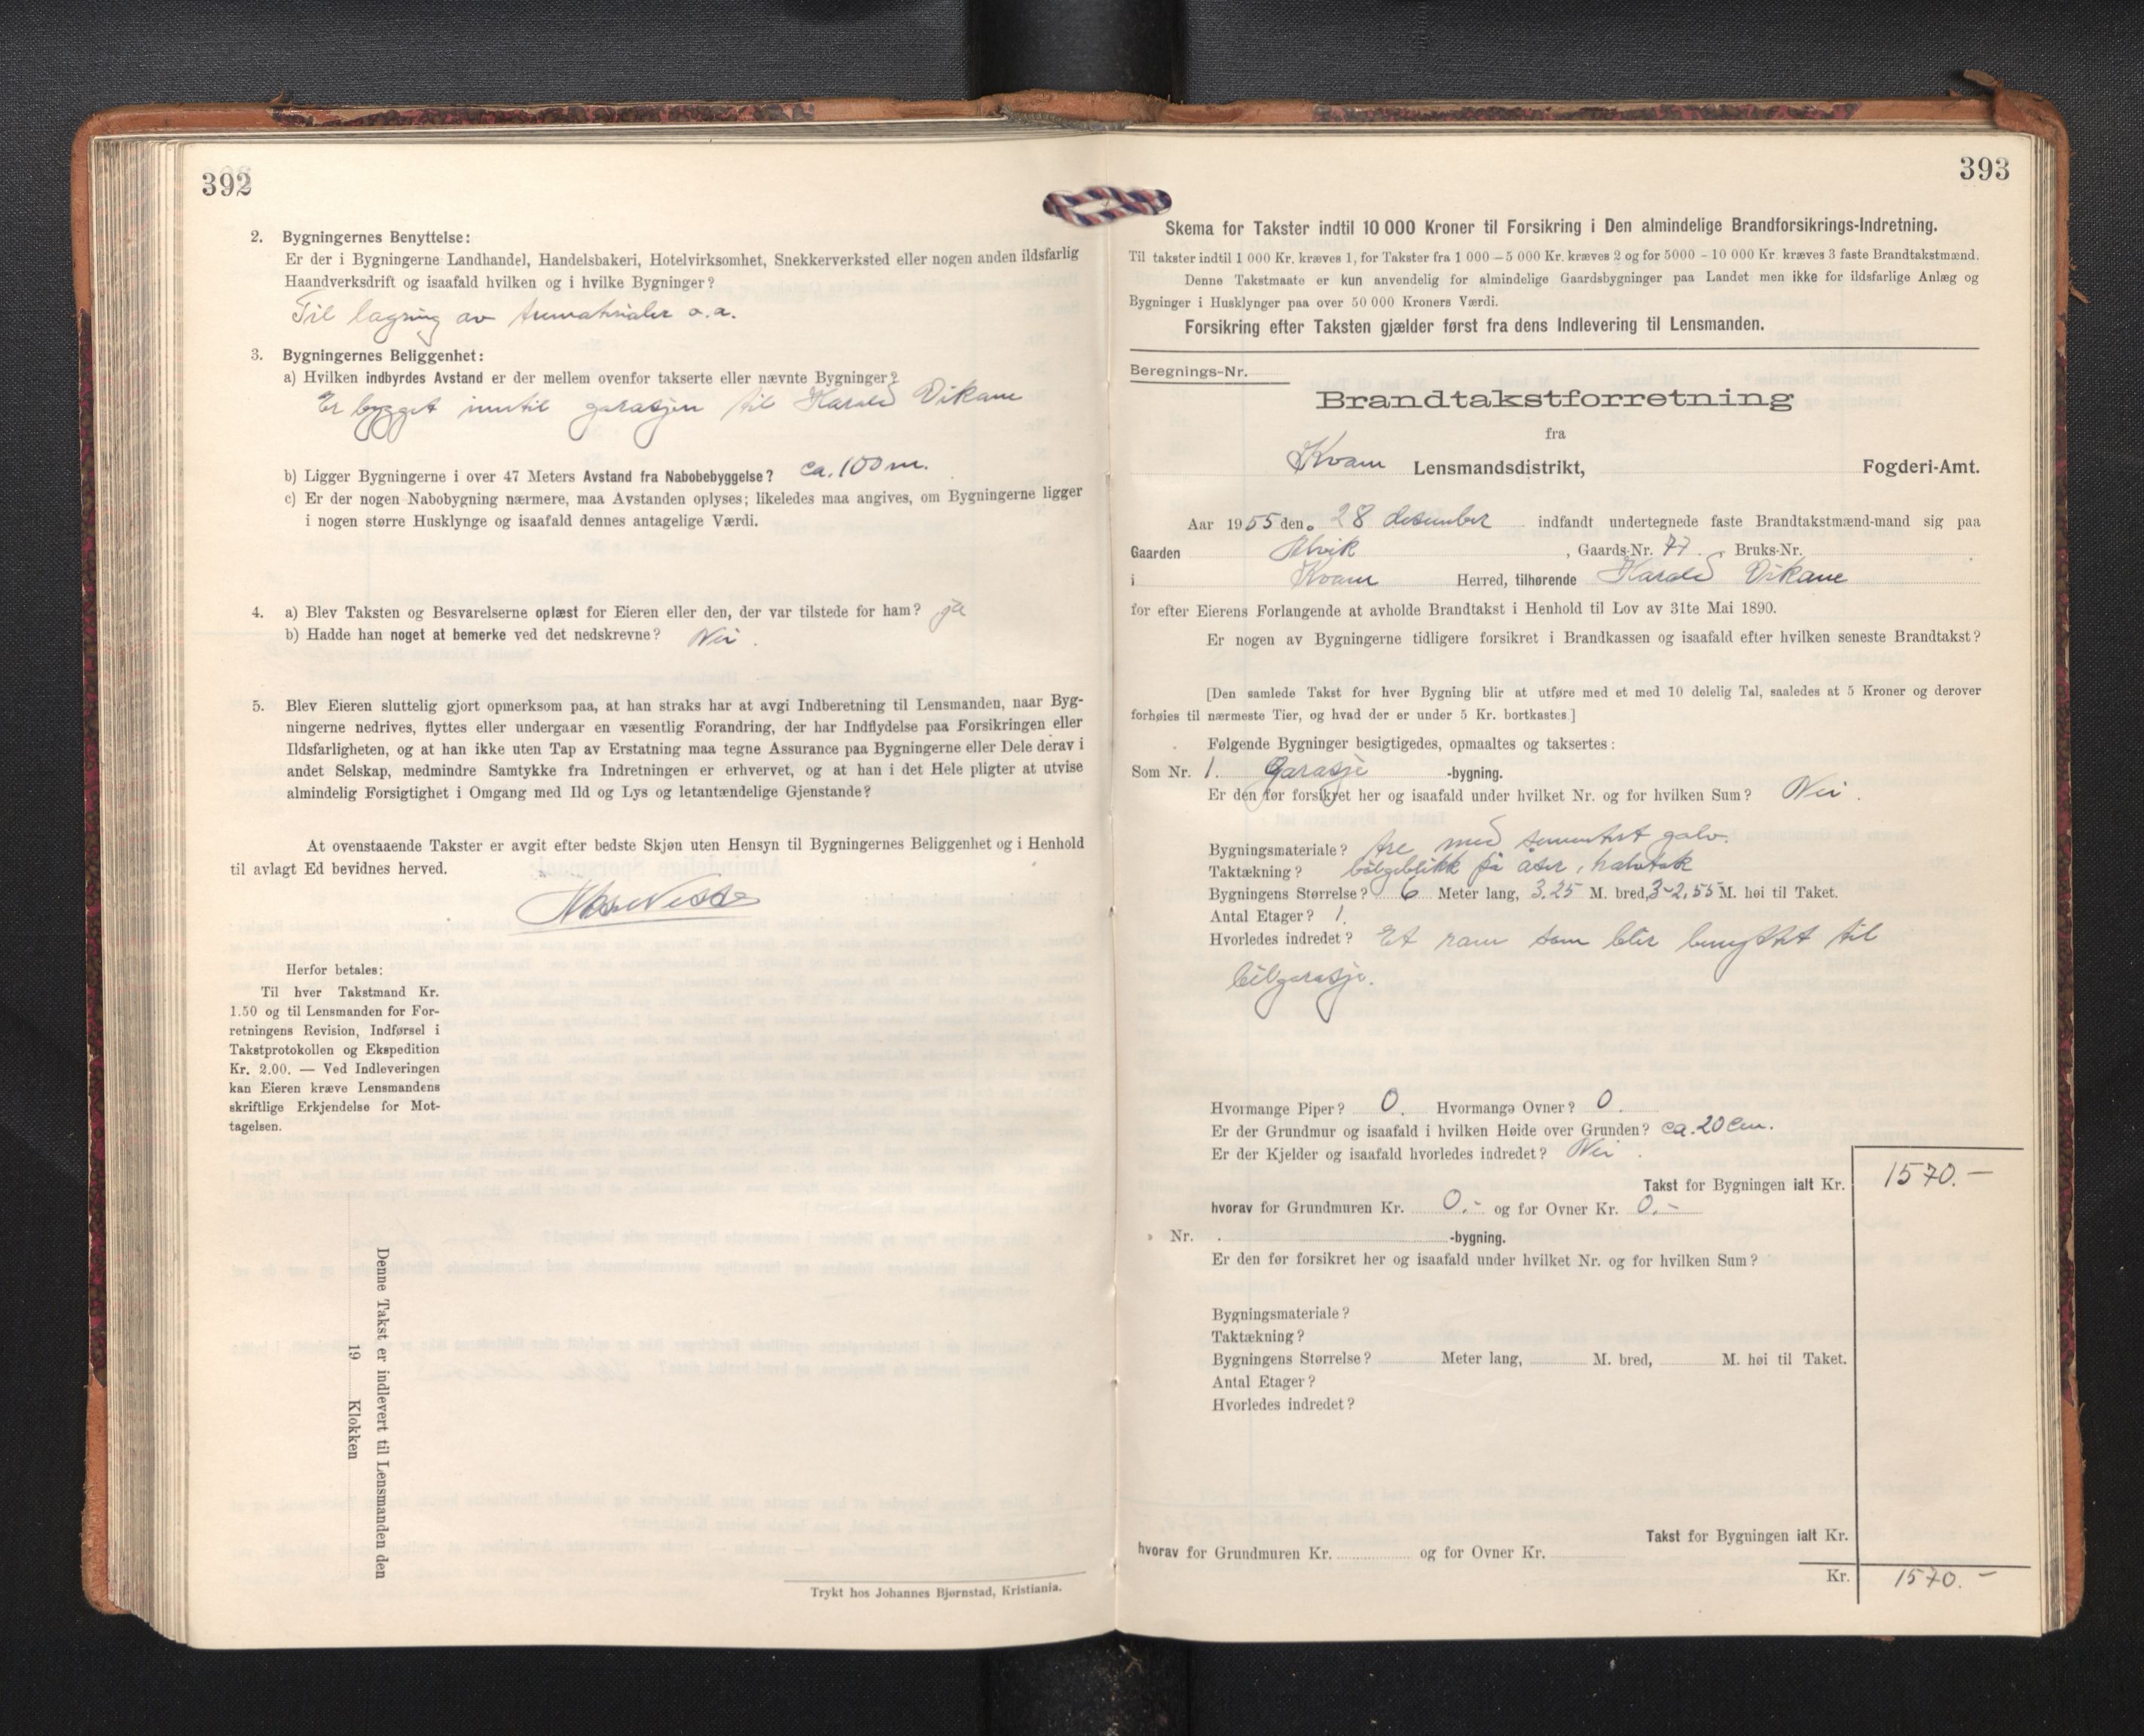 392
2. Bygningernes Benyttelse:
Er der i Bygningerne Landhandel, Handelsbakeri, Hotelvirksomhet, Snekkerverksted eller nogen anden ildsfarlig
Haandverksdrift og isaafald hvilken og i hvilke Bygninger?
Til lagring av trematrialer o.a.
3. Bygningernes Beliggenhet:
a) Hvilken indbyrdes Avstand er der mellem ovenfor takserte eller nævnte Bygninger?
Er bygget inntil garasjen til Harald Vikane
b) Ligger Bygningerne i over 47 Meters Avstand fra Nabobebyggelse? ca. 100 m.
c) Er der nogen Nabobygning nærmere, maa Avstanden oplyses; likeledes maa angives, om Bygningerne ligger
i nogen større Husklynge og isaafald dennes antagelige Værdi.
4. a) Blev Taksten og Besvarelserne oplæst for Eieren eller den, der var tilstede for ham? ja
b) Hadde han noget at bemerke ved det nedskrevne? Nei.
5. Blev Eieren sluttelig gjort opmerksom paa, at han straks har at avgi Indberetning til Lensmanden, naar Byg-
ningerne nedrives, flyttes eller undergaar en væsentlig Forandring, der har Indflydelse paa Forsikringen eller
Ildsfarligheten, og at han ikke uten Tap av Erstatning maa tegne Assurance paa Bygningerne eller Dele derav i
andet Selskap, medmindre Samtykke fra Indretningen er erhvervet, og at han i det Hele pligter at utvise
almindelig Forsigtighet i Omgang med Ild og Lys og letantændelige Gjenstande?
At ovenstaaende Takster er avgit efter bedste Skjøn uten Hensyn til Bygningernes Beliggenhet og i Henhold
til avlagt Ed bevidnes herved.
Herfor betales:
Til hver Takstmand Kr.
1.50 og til Lensmanden for For-
retningens Revision, Indførsel i
Takstprotokollen og Ekspedition
Kr. 2.00. — Ved Indleveringen
kan Eieren kræve Lensmandens
skriftlige Erkjendelse for Mot-
tagelsen.
Denne Takst er indlevert til Lensmanden den
19 Klokken
Trykt hos Johannes Bjørnstad, Kristiania.
393
Skema for Takster indtil 10 000 Kroner til Forsikring i Den almindelige Brandforsikrings-Indretning.
Til takster indtil 1 000 Kr. kræves 1, for Takster fra 1 000 – 5 000 Kr. kræves 2 og for 5000 – 10 000 Kr. kræves 3 faste Brandtakstmænd.
Denne Takstmaate er kun anvendelig for almindelige Gaardsbygninger paa Landet men ikke for ildsfarlige Anlæg og
Bygninger i Husklynger paa over 50 000 Kroners Værdi.
Forsikring efter Taksten gjælder først fra dens Indlevering til Lensmanden.
Beregnings-Nr.
Brandtakstforretning
fra
Kvam Lensmandsdistrikt, Fogderi-Amt.
Aar 1955 den 28 desember indfandt undertegnede faste Brandtakstmænd-mand sig paa
Gaarden Ålvik, Gaards-Nr. 77. Bruks-Nr.
i Kvam Herred, tilhørende Harald Vikane
for efter Eierens Forlangende at avholde Brandtakst i Henhold til Lov av 31te Mai 1890.
Er nogen av Bygningerne tidligere forsikret i Brandkassen og isaafald efter hvilken seneste Brandtakst?
[Den samlede Takst for hver Bygning blir at utføre med et med 10 delelig Tal, saaledes at 5 Kroner og derover
forhøies til nærmeste Tier, og hvad der er under 5 Kr. bortkastes.]
Følgende Bygninger besigtigedes, opmaaltes og taksertes:
Som Nr. 1. Garasje -bygning.
Er den før forsikret her og isaafald under hvilket Nr. og for hvilken Sum? Nei.
Bygningsmateriale? tre med sementert golv.
Taktækning? bølgeblikk på åser, halvtak
Bygningens Størrelse? 6 Meter lang, 3,25 M. bred, 3-2,55 M. høi til Taket.
Antal Etager? 1.
Hvorledes indredet? Et rom som blir benyttet til
bilgarasje.
Hvormange Piper? 0. Hvormange Ovner? 0.
Er der Grundmur og isaafald i hvilken Høide over Grunden? ca. 20 cm.
Er der Kjelder og isaafald hvorledes indredet? Nei.
Takst for Bygningen ialt Kr. 1570.-
hvorav for Grundmuren Kr. 0.- og for Ovner Kr. 0.-
» Nr. -bygning.
Er den før forsikret her og isaafald under hvilket Nr. og for hvilken Sum?
Bygningsmateriale?
Taktækning?
Bygningens Størrelse? Meter lang, M. bred, M. høi til Taket.
Antal Etager?
Hvorledes indredet?
Takst for Bygningen ialt Kr.
hvorav for Grundmuren Kr. og for Ovner Kr.
Kr. 1570.-